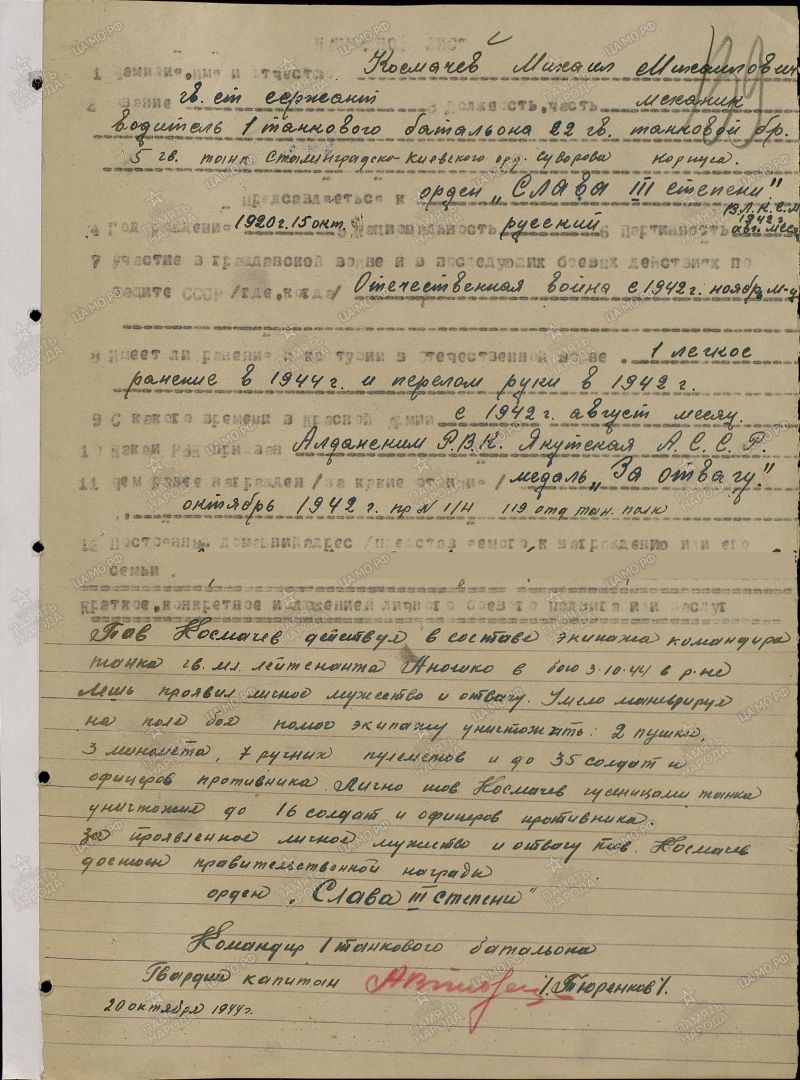 НАГРАДНОЙ ЛИСТ
1 Фамилия, имя и отчество Космачев Михаил Михаилович
2 Звание гв. ст сержант 3 Должность, часть механик
водитель 1 танкового батальона 22 гв. танковой бр.
5 гв. танк Сталинградско-Киевского орд. Суворова корпуса.
Представляется к орден „Слава III степени"
В.Л.К.С.М
1942 г
4 Год рождения 1920 г. 15 окт. 5 Национальность русский 6 Партийность авг. мес
7 Участие в гражданской войне и в последующих боевых действиях по
защите СССР /где, когда/ Отечественная война с 1942 г. ноябрь м-ц
8 Имеет ли ранения и контузии в отечественной войне . 1 легкое
ранение в 1944 г. и перелом руки в 1942 г.
9 С какого времени в Красной Армии с 1942 г. август месяц.
10 Каким РВК призван Алданским Р.В.К. Якутская А.С.С.Р.
11 Чем ранее награжден /за какие отличия/ медаль „За отвагу."
октябрь 1942 г. пр N 1/Н 119 отд тан. полк
12 Постоянный домашний адрес /представляемого к награждению или его
семьи .
Краткое, конкретное изложение личного боевого подвига или заслуг
Тов Космачев действуя в составе экипажа командира
танка гв. мл. лейтенанта Яношко в бою 3.10.44 в р-не
Лешь проявил личное мужество и отвагу. Умело маневрируя
на поле боя помог экипажу уничтожить: 2 пушки,
3 миномета, 7 ручных пулеметов и до 35 солдат и
офицеров противника. Лично тов Космачев гусеницами танка
уничтожил до 16 солдат и офицеров противника.
За проявленное личное мужество и отвагу тов. Космачев
достоен правительственной награды
орден „Слава III степени"
Командир 1 танкового батальона
Гвардии капитан /Тюренков/.
20 октября 1944 г.
ЦАМО.РФ
ПАМЯТЬ НАРОДА